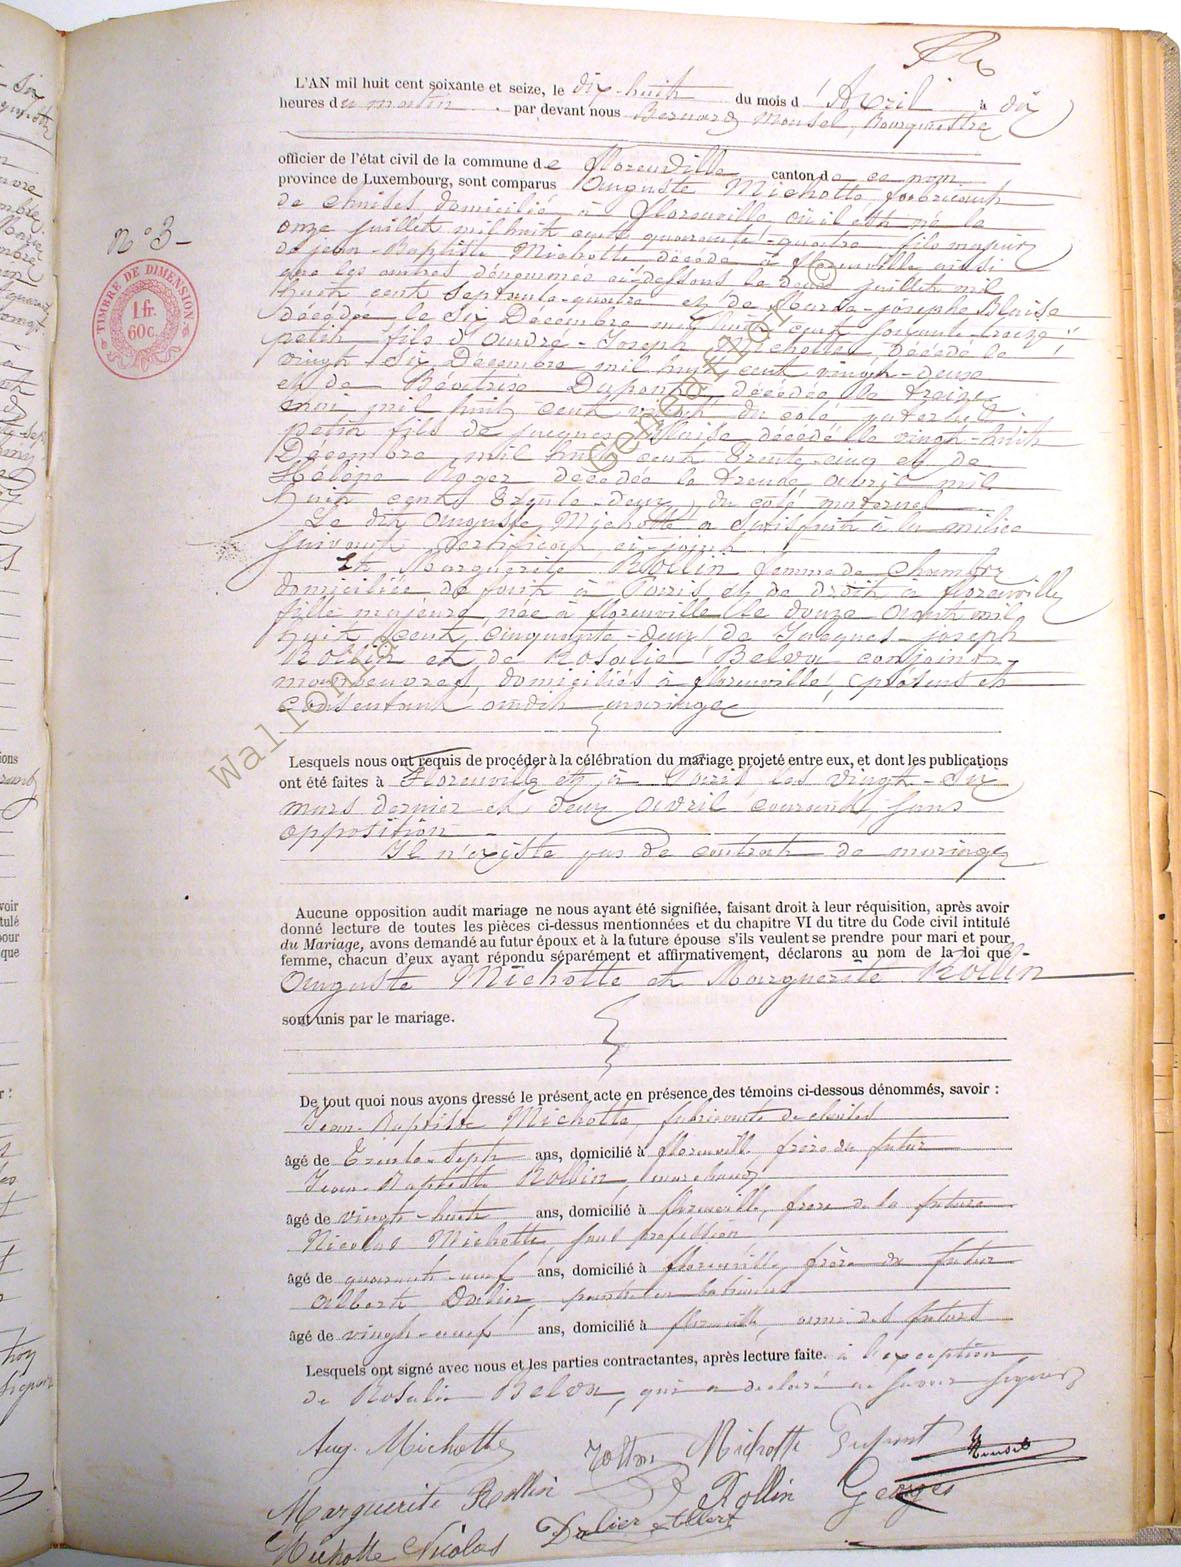 N° 3
TIMBRE DE DIMENSION
1 fr.
60 c.
L'AN mil huit cent soixante et seize, le dix-huit du mois d'Avril à dix
heures du matin par devant nous Bernard Mousel, Bourgmestre
officier de l'état civil de la commune de florenville canton de ce nom
province de Luxembourg, sont comparus Auguste Michotte fabricant
de chaises domicilié à florenville où il est né le
onze juillet mil huit cent quarante-quatre fils majeur
de jean-Baptiste Michotte décédé à florenville ainsi
que les autres dénommés ci-dessous, le douze juillet mil
huit cent septante-quatre et de Marie-josephe Blaise
décédée le six Décembre mil huit cent soixante-treize
petit fils d'André-Joseph Michotte, décédé le
vingt six Décembre mil huit cent vingt-deux
et de Béatrice Dupont, décédée le treize
mai mil huit cent vingt du côté paternel
petit fils de jacques Blaise, décédé le vingt-huit
Décembre mil huit cent trente-cinq et de
Hélène Roger décédée le trente avril mil
huit cent trente-deux, du coté maternel
Le dix Auguste Michotte a satisfait à la milice
suivant certificat ci-joint.
Et Marguerite Rollin femme de chambre
domiciliée de fait à Paris et de droit à florenville
fille majeure, née à florenville le douze Août mil
huit cent cinquante-deux, de Jacques-joseph
Rollin et de Rosalie Belva conjoints
manoeuvres, domiciliés à florenville, présents et
consentant audit mariage
Lesquels nous ont requis de procéder à la célébration du mariage projeté entre eux, et dont les publications
ont été faites à Florenville et à Paris les vingt-six
mars dernier et deux avril courant sans
opposition
Il n'existe pas de contrat de mariage
Aucune opposition audit mariage ne nous ayant été signifiée, faisant droit à leur réquisition, après avoir
donné lecture de toutes les pièces ci-dessus mentionnées et du chapitre VI du titre du Code civil intitulé
du Mariage, avons demandé au futur époux et à la future épouse s'ils veulent se prendre pour mari et pour
femme, chacun d'eux ayant répondu séparément et affirmativement, déclarons au nom de la loi que
Auguste Michotte et Marguerite Rollin
sont unis par le mariage.
De tout quoi nous avons dressé le présent acte en présence des témoins ci-dessous dénommés, savoir :
Jean-Baptiste Michotte, fabricant de chaises
âgé de trente-sept ans, domicilié à florenville frère du futur
Jean-Baptiste Rollin, marchand
âgé de vingt-huit ans, domicilié à florenville, frère de la future
Nicolas Michotte, sans profession
âgé de quarante-neuf ans, domicilié à florenville, frère du futur
Albert Dalier, peintre en batiments
âgé de vingt-neuf ans, domicilié à florenville, ami des futurs
Lesquels ont signé avec nous et les parties contractantes, après lecture faite. à l'exception
de Rosalie Belva, qui a déclaré ne savoir signer
Aug. Michotte Rollin Michotte Mousel
Marguerite Rollin Rollin Georges
Michotte Nicolas Dalier Albert
Wallonia Genea-Hor ©